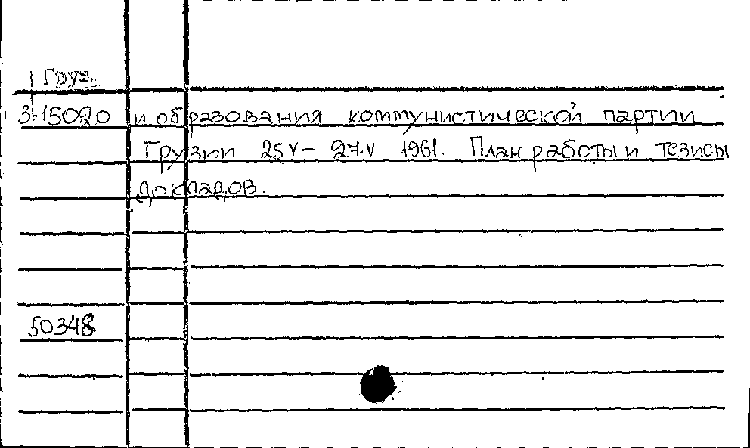 Груз.
3-15020 и образования коммунистической партии
Грузии 25V-27.V 1961. План работы и тезисы
докладов.
50348